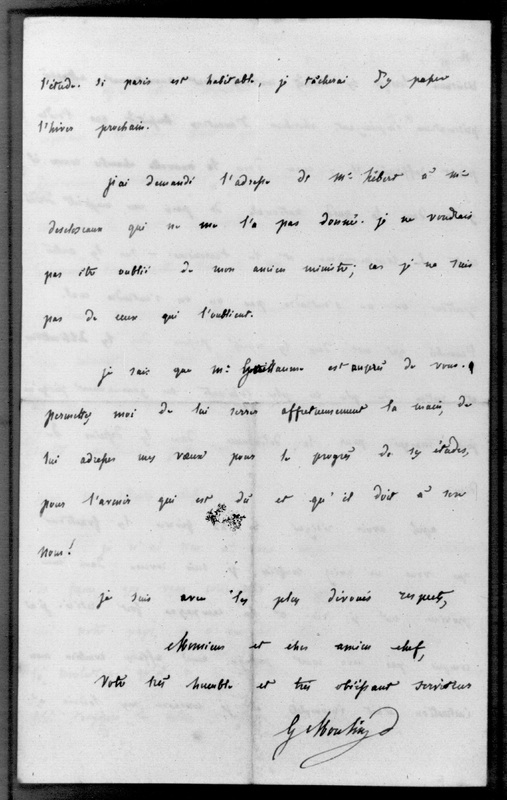 l'étude. si paris est habitable, je tâcherai d'y passer
l'hiver prochain.
j'ai demandé l'adresse de Mr. hébert à Mr
descloseaux qui ne me l'a pas donné. je ne voudrais
pas être oublié de mon ancien ministre; car je ne suis
pas de ceux qui l'oublient.
je sais que Mr. Guillaume est auprès de vous.
permettez moi de lui serrer affectueusement la main, de
lui adresser mes vœux pour le progrès de ses études,
pour l'avenir qui est dû et qu'il doit à son
nom!
je suis avec les plus dévoués respects,
Monsieur et cher ancien chef,
Votre très humble et très obéissant serviteur